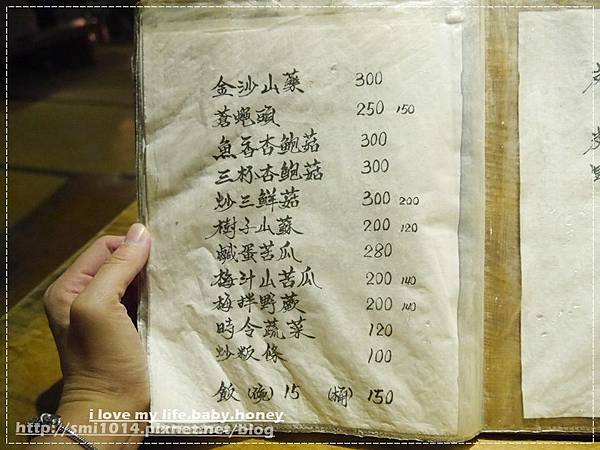 金沙山藥 300
蒼蠅頭 250 150
魚香杏鮑菇 300
三杯杏鮑菇 300
炒三鮮菇 300 200
樹子山蘇 200 120
鹹蛋苦瓜 280
梅汁山苦瓜 200 140
梅拌野蕨 200 140
時令蔬菜 120
炒粄條 100
飯(碗) 15 (桶) 150
i love my life.baby.honey
http://smi1014.pixnet.net/blog